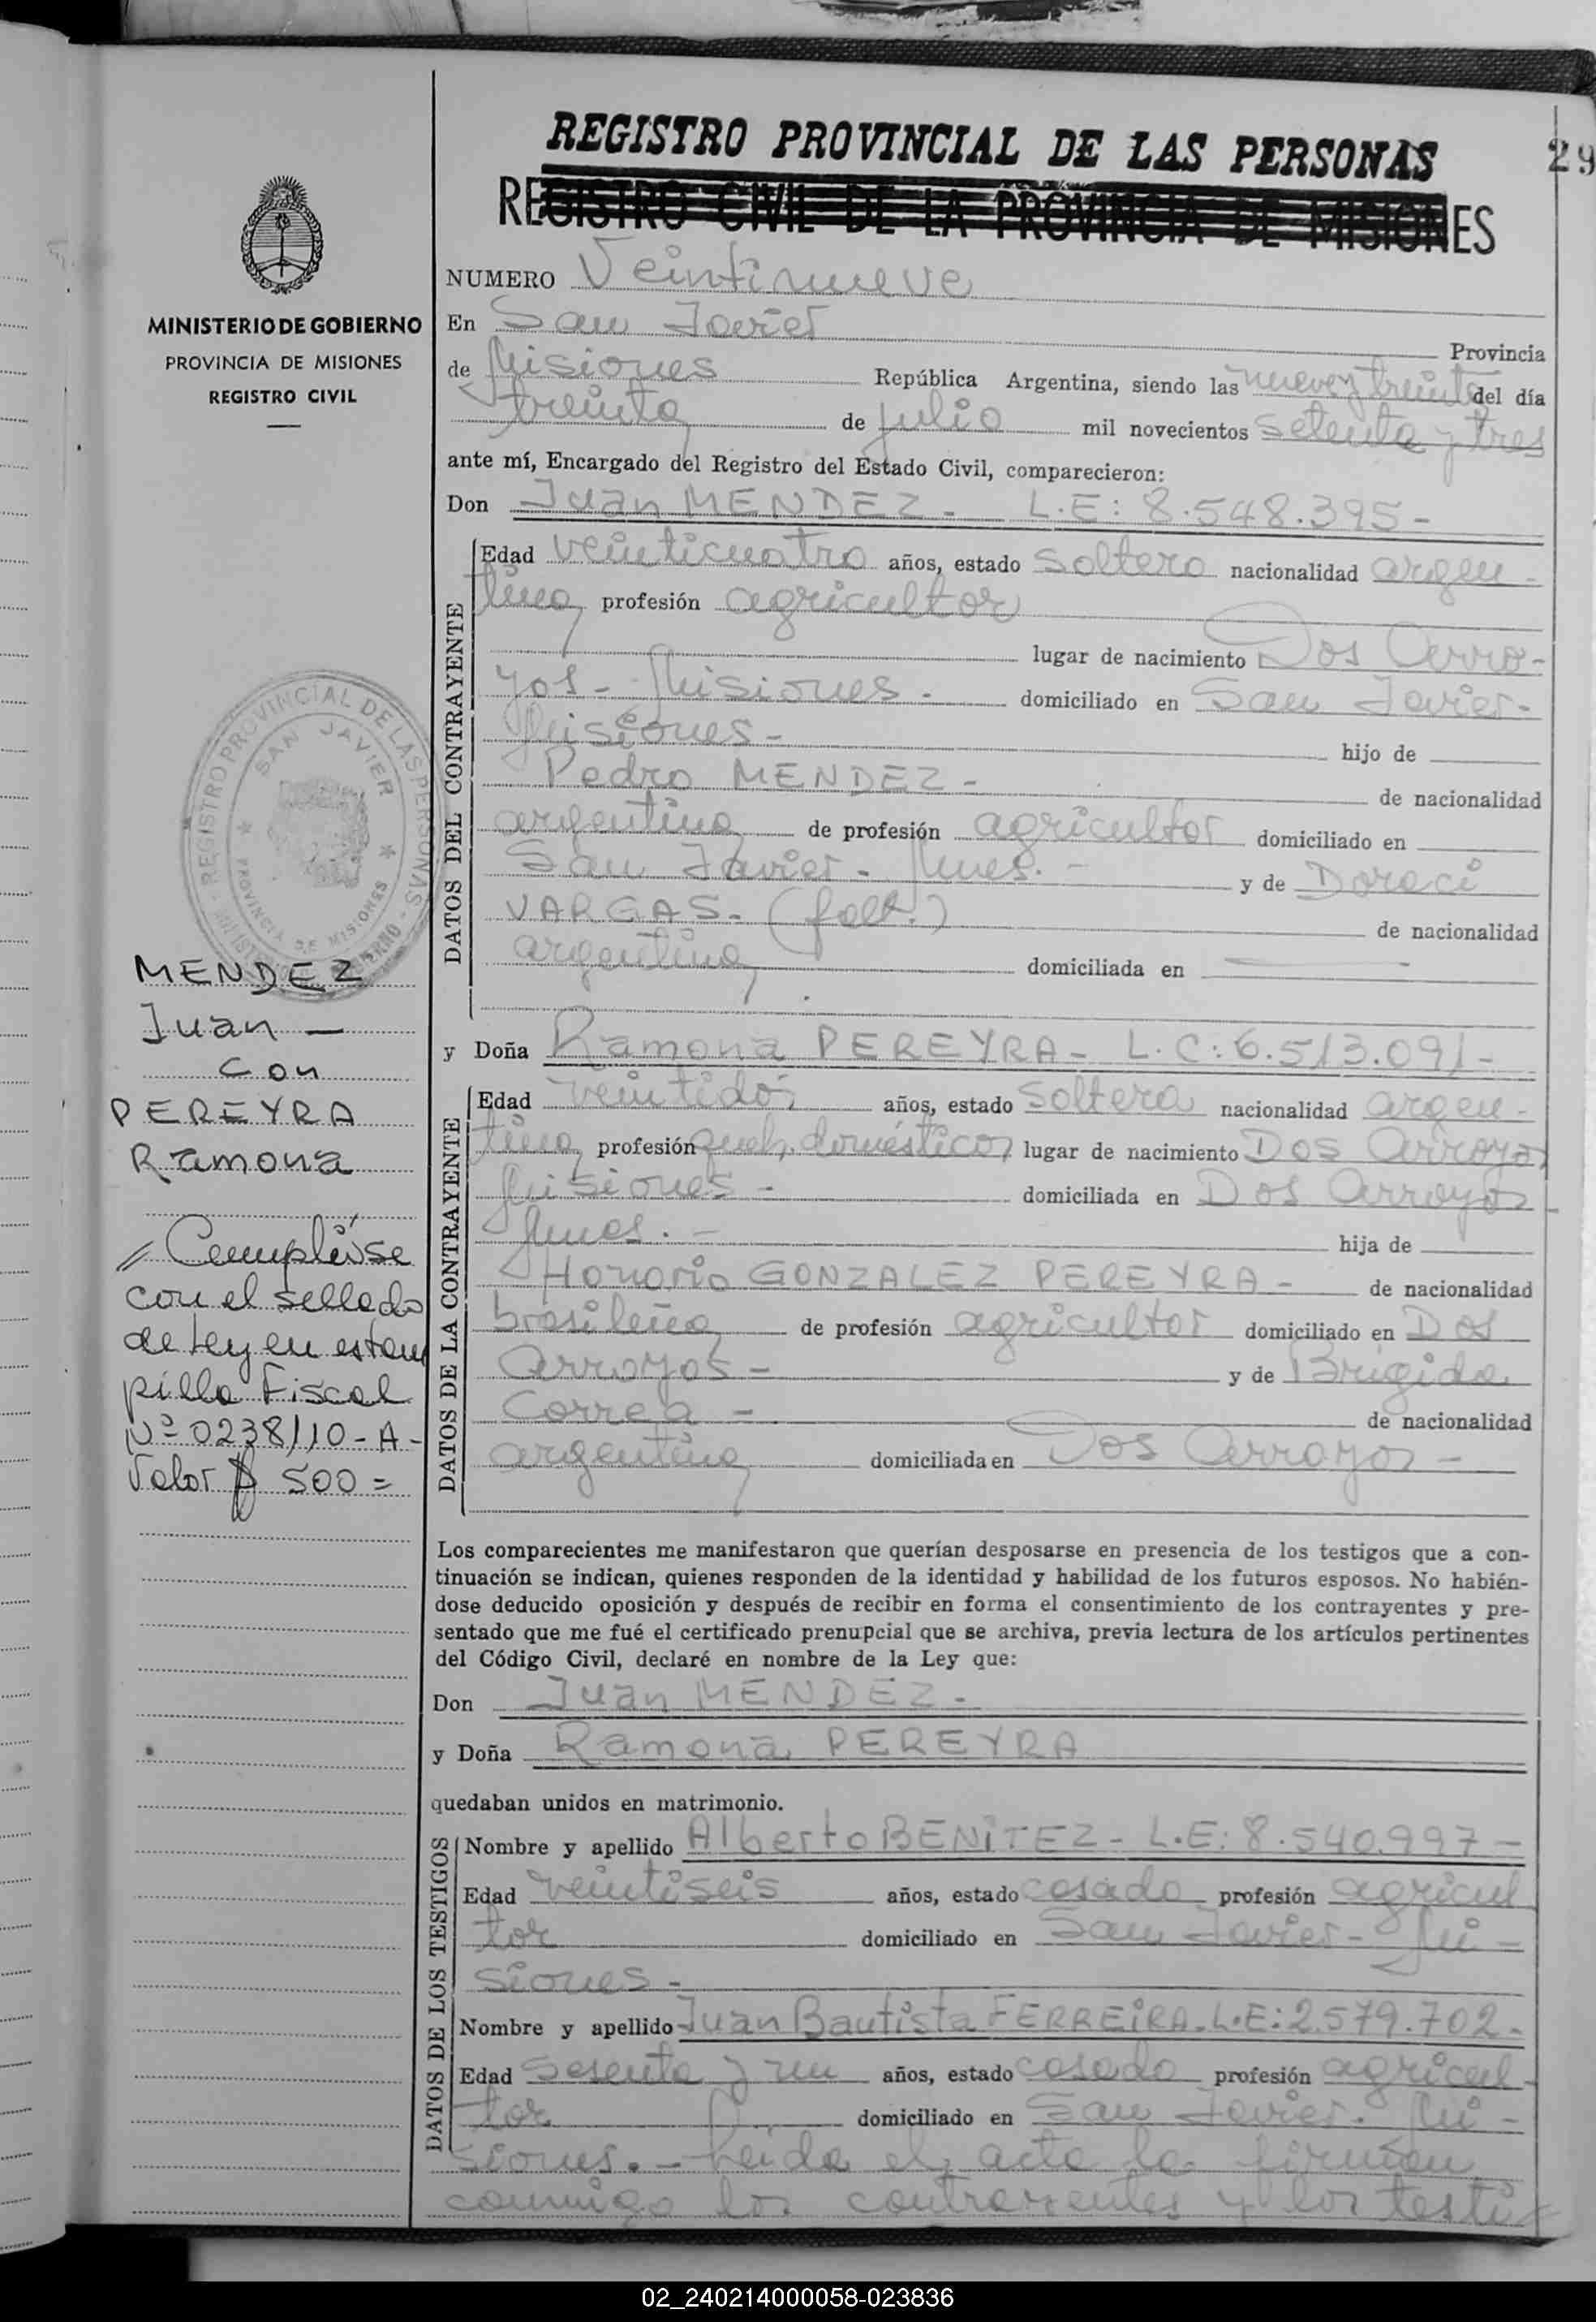 REGISTRO PROVINCIAL DE LAS PERSONAS
29
REGISTRO CIVIL DE LA PROVINCIA DE MISIONES
MINISTERIO DE GOBIERNO
PROVINCIA DE MISIONES
REGISTRO CIVIL
NUMERO Veintinueve
En San Javier Provincia
de Misiones República Argentina, siendo las nueve y treinta del día
treinta de julio mil novecientos setenta y tres
ante mí, Encargado del Registro del Estado Civil, comparecieron:
Don Juan MENDEZ - L.E: 8.548.395-
DATOS DEL CONTRAYENTE
Edad veinticuatro años, estado soltero nacionalidad argen-
tina profesión agricultor
lugar de nacimiento Dos Arro-
yos - Misiones - domiciliado en San Javier-
Misiones - hijo de
Pedro MENDEZ - de nacionalidad
argentina de profesión agricultor domiciliado en
San Javier - Mnes. - y de Doraci
VARGAS - (fall.) de nacionalidad
argentina domiciliada en
REGISTRO PROVINCIAL DE LAS PERSONAS
SAN JAVIER
PROVINCIA DE MISIONES
MENDEZ
Juan -
con
PEREYRA
Ramona
Cumplióse
con el sellado
de Ley en estam
pilla Fiscal
Nº 0238110-A-
Valor $ 500=
y Doña Ramona PEREYRA - L.C: 6.513.091-
DATOS DE LA CONTRAYENTE
Edad veintidós años, estado soltera nacionalidad argen-
tina profesión queh. domésticos lugar de nacimiento Dos Arroyos
Misiones - domiciliada en Dos Arroyos
Mnes. - hija de
Honorio GONZALEZ PEREYRA - de nacionalidad
brasileña de profesión agricultor domiciliado en Dos
Arroyos - y de Brigida
Correa - de nacionalidad
argentina domiciliada en Dos Arroyos -
Los comparecientes me manifestaron que querían desposarse en presencia de los testigos que a con-
tinuación se indican, quienes responden de la identidad y habilidad de los futuros esposos. No habién-
dose deducido oposición y después de recibir en forma el consentimiento de los contrayentes y pre-
sentado que me fué el certificado prenupcial que se archiva, previa lectura de los artículos pertinentes
del Código Civil, declaré en nombre de la Ley que:
Don Juan MENDEZ -
y Doña Ramona PEREYRA
quedaban unidos en matrimonio.
DATOS DE LOS TESTIGOS
Nombre y apellido Alberto BENITEZ - L.E: 8.540.997-
Edad veintiseis años, estado casado profesión agricul
tor domiciliado en San Javier - Mi-
siones -
Nombre y apellido Juan Bautista FERREIRA - L.E: 2.579.702-
Edad sesenta y un años, estado casado profesión agricul-
tor domiciliado en San Javier - Mi-
siones. - Leída el acta la firman
conmigo los contrayentes y los testi
02_240214000058-023836